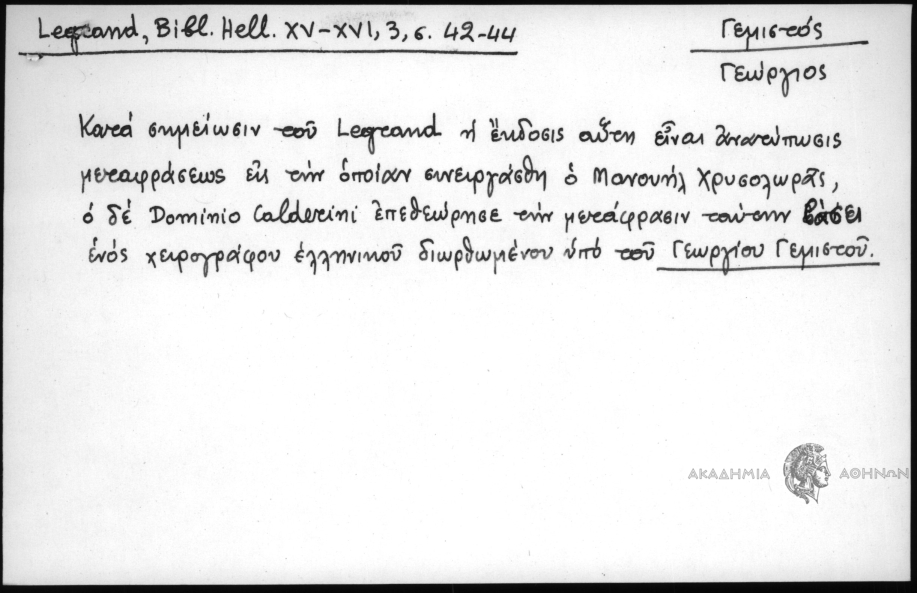 Legrand, Bibl. Hell. XV-XVI, 3, σ. 42-44
Γεμιστός
Γεώργιος
Κατά σημείωσιν τοῦ Legrand ἡ ἔκδοσις αὕτη εἶναι ἀνατύπωσις
μεταφράσεως εἰς τήν ὁποίαν συνειργάσθη ὁ Μανουήλ Χρυσολωρᾶς,
ὁ δέ Dominio Calderini ἐπεθεώρησε τήν μετάφρασιν ταύτην βάσει
ἑνός χειρογράφου ἑλληνικοῦ διωρθωμένου ὑπό τοῦ Γεωργίου Γεμιστοῦ.
ΑΚΑΔΗΜΙΑ ΑΘΗΝΩΝ